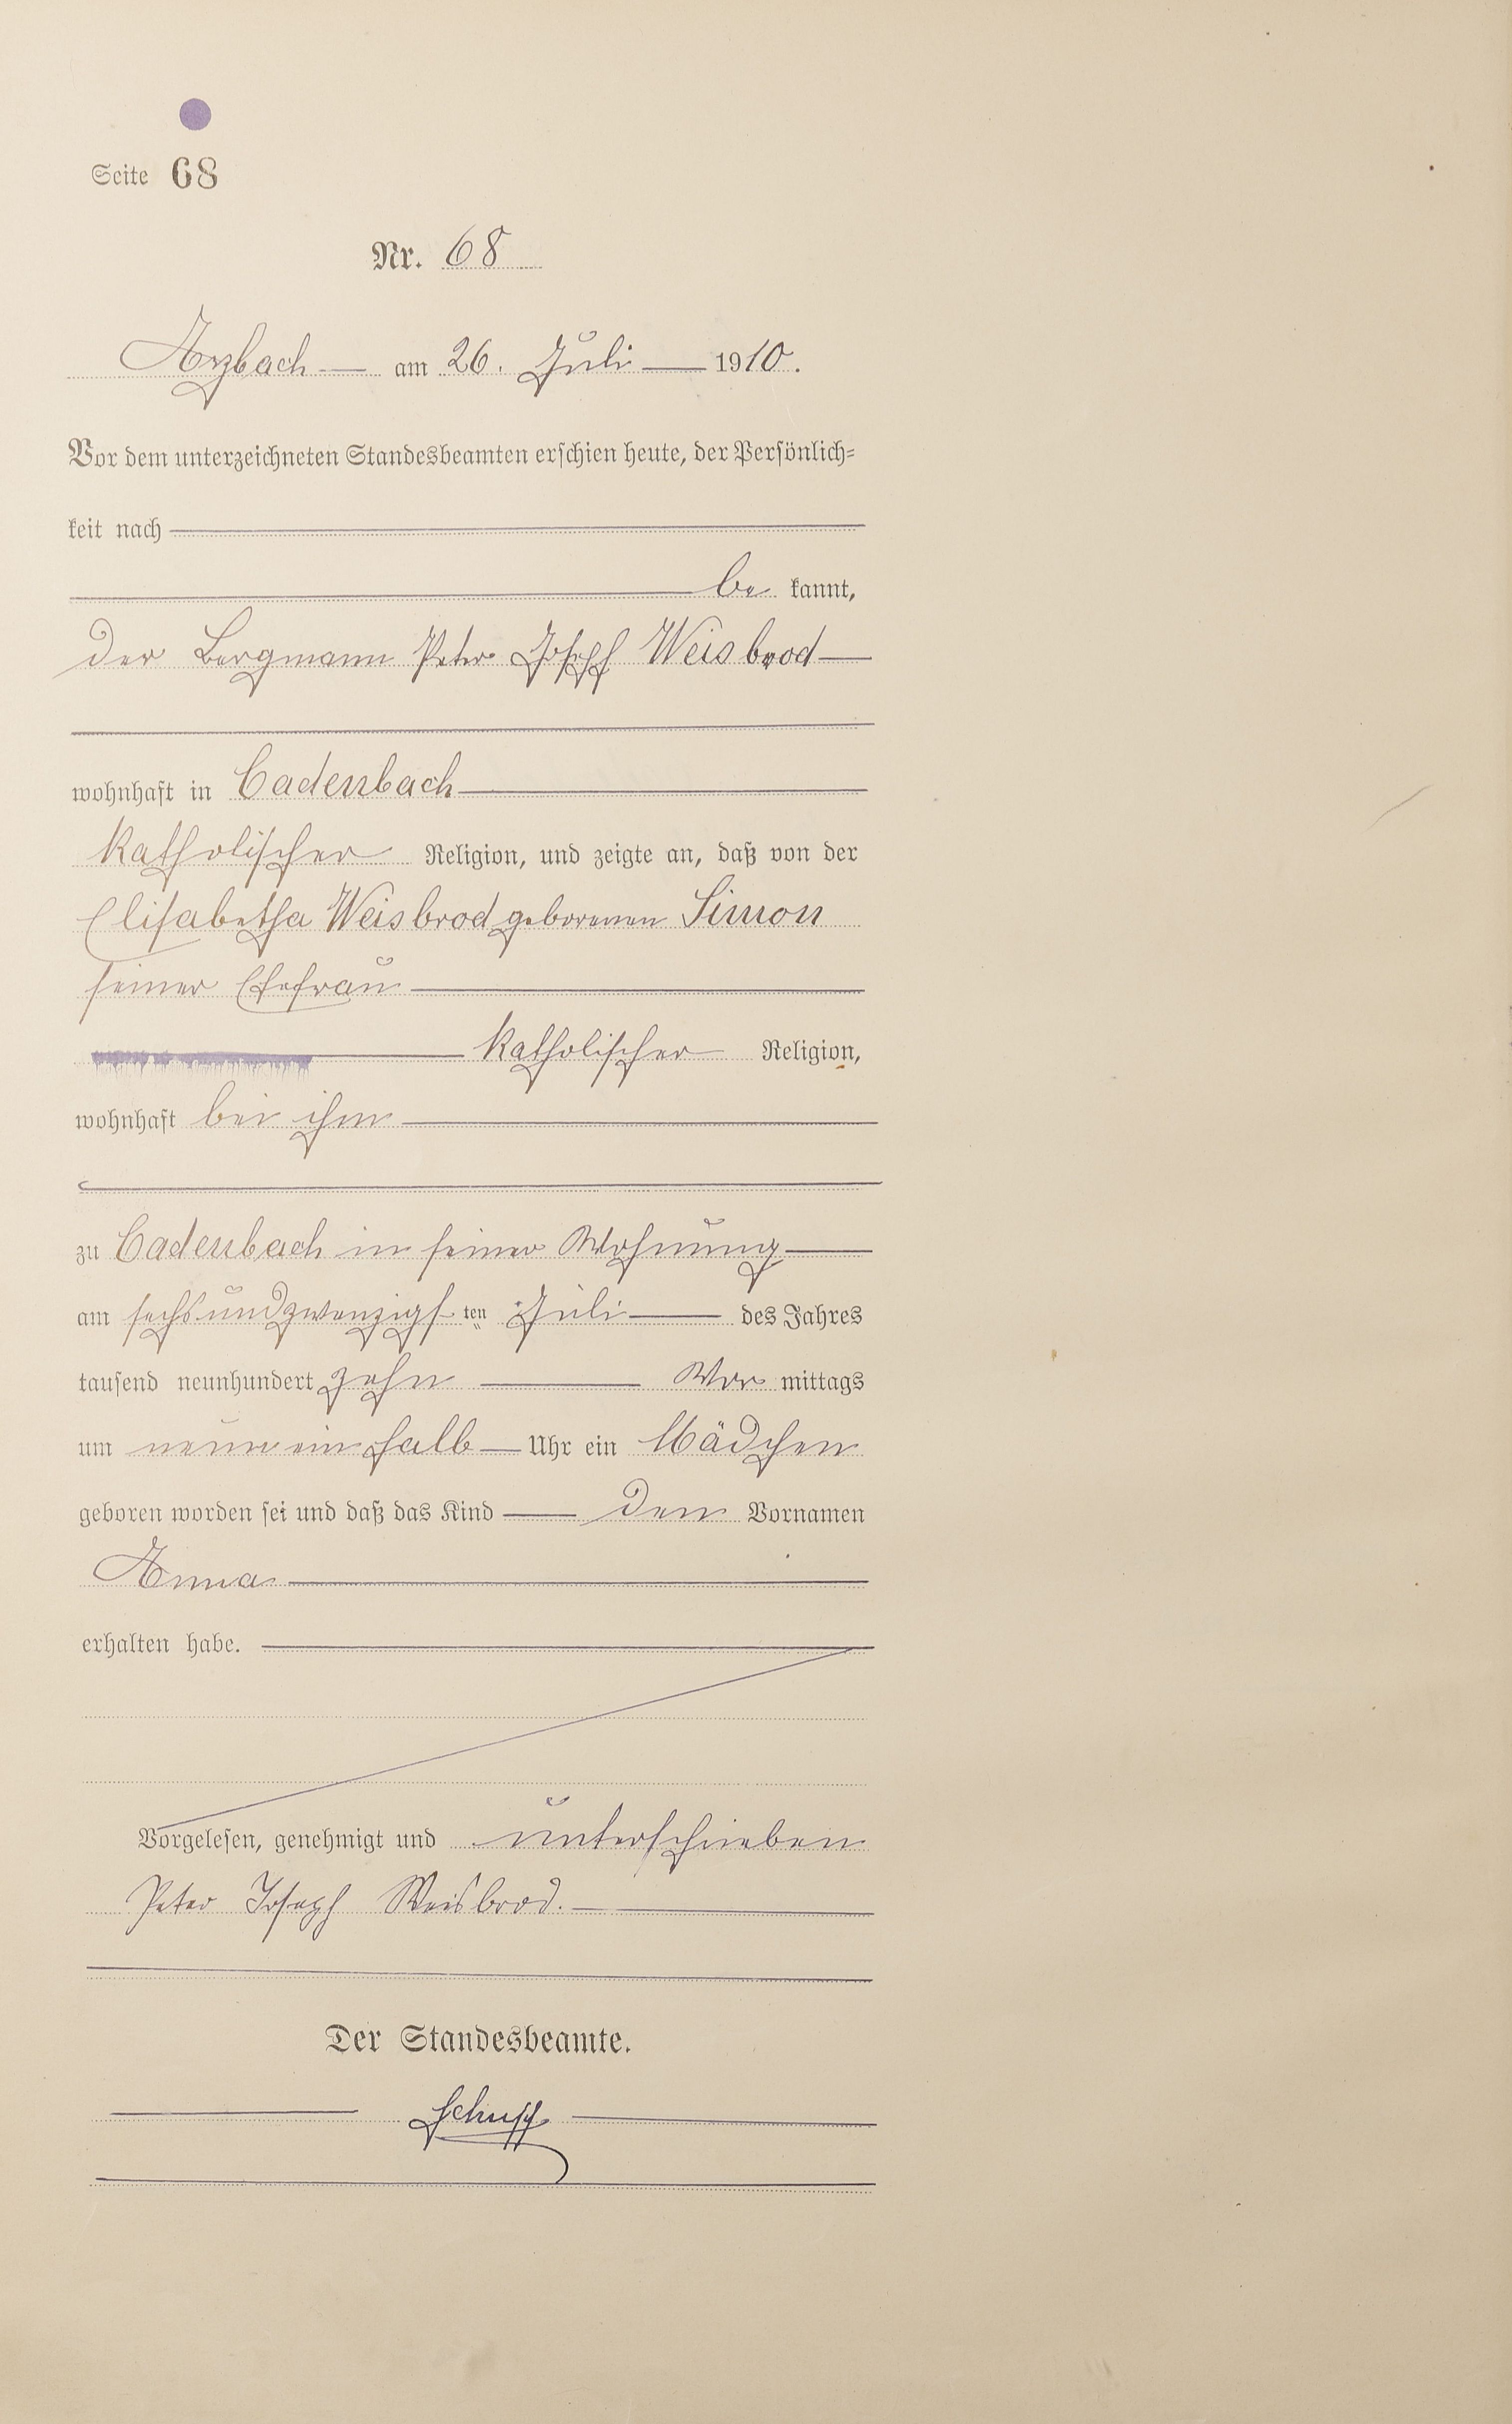 Seite 68
Nr. 68
Arzbach am 26. Juli 1910.
Vor dem unterzeichneten Standesbeamten erschien heute, der Persönlich=
keit nach
be kannt,
der Bergmann Peter Joseph Weisbrod
wohnhaft in Cadenbach
katholischer Religion, und zeigte an, daß von der
Elisabetha Weisbrod geborenen Simon
seiner Ehefrau
katholischer Religion,
wohnhaft bei ihm
zu Cadenbach in seiner Wohnung
am sechsundzwanzigsten Juli des Jahres
tausend neunhundert zehn Vor mittags
um neun ein halb Uhr ein Mädchen
geboren worden sei und daß das Kind den Vornamen
Anna
erhalten habe.
Vorgelesen, genehmigt und unterschrieben
Peter Joseph Weisbrod.
Der Standesbeamte.